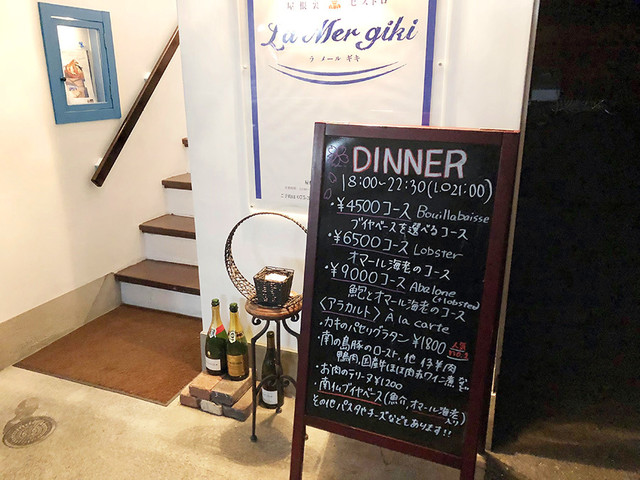 屋根裏 ビストロ
La Mer giki
ラ メール ギキ
DINNER
18:00~22:30(LO21:00)
・¥4500コース Bouillabaisse
ブイヤベースを選べるコース
・¥6500コース Lobster
オマール海老のコース
・¥9000コース Abalone
鮑とオマール海老のコース (+lobster)
〈アラカルト〉 A la carte
・カキのパセリグラタン ¥1800 人気 no.1
・南の島豚のロースト、他 仔羊肉
鴨肉、国産牛ほほ肉赤ワイン煮
・お肉のテリーヌ ¥1200
・南仏ブイヤベース(魚介、オマール海老入り)
その他パスタやチーズなどもあります!!